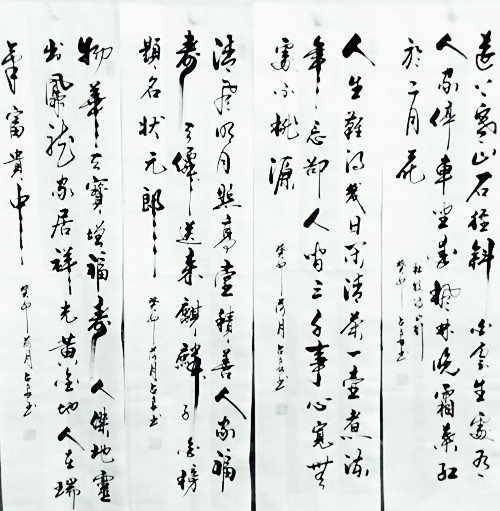 遠上寒山石徑斜白雲生處有
人家停車坐愛楓林晚霜葉紅
於二月花
杜牧詩山行
癸卯
人生難得幾日閑清茶一壺煮流
年忘卻人間三千事心寬無
處不桃源
癸卯荷月
清風明月照高堂積善人家福
壽天僊送來麒麟子金榜
題名狀元郎
癸卯荷月
物華天寶增福壽人傑地靈
出鳳龍家居祥光黃金地人在瑞
氣富貴中
癸卯荷月